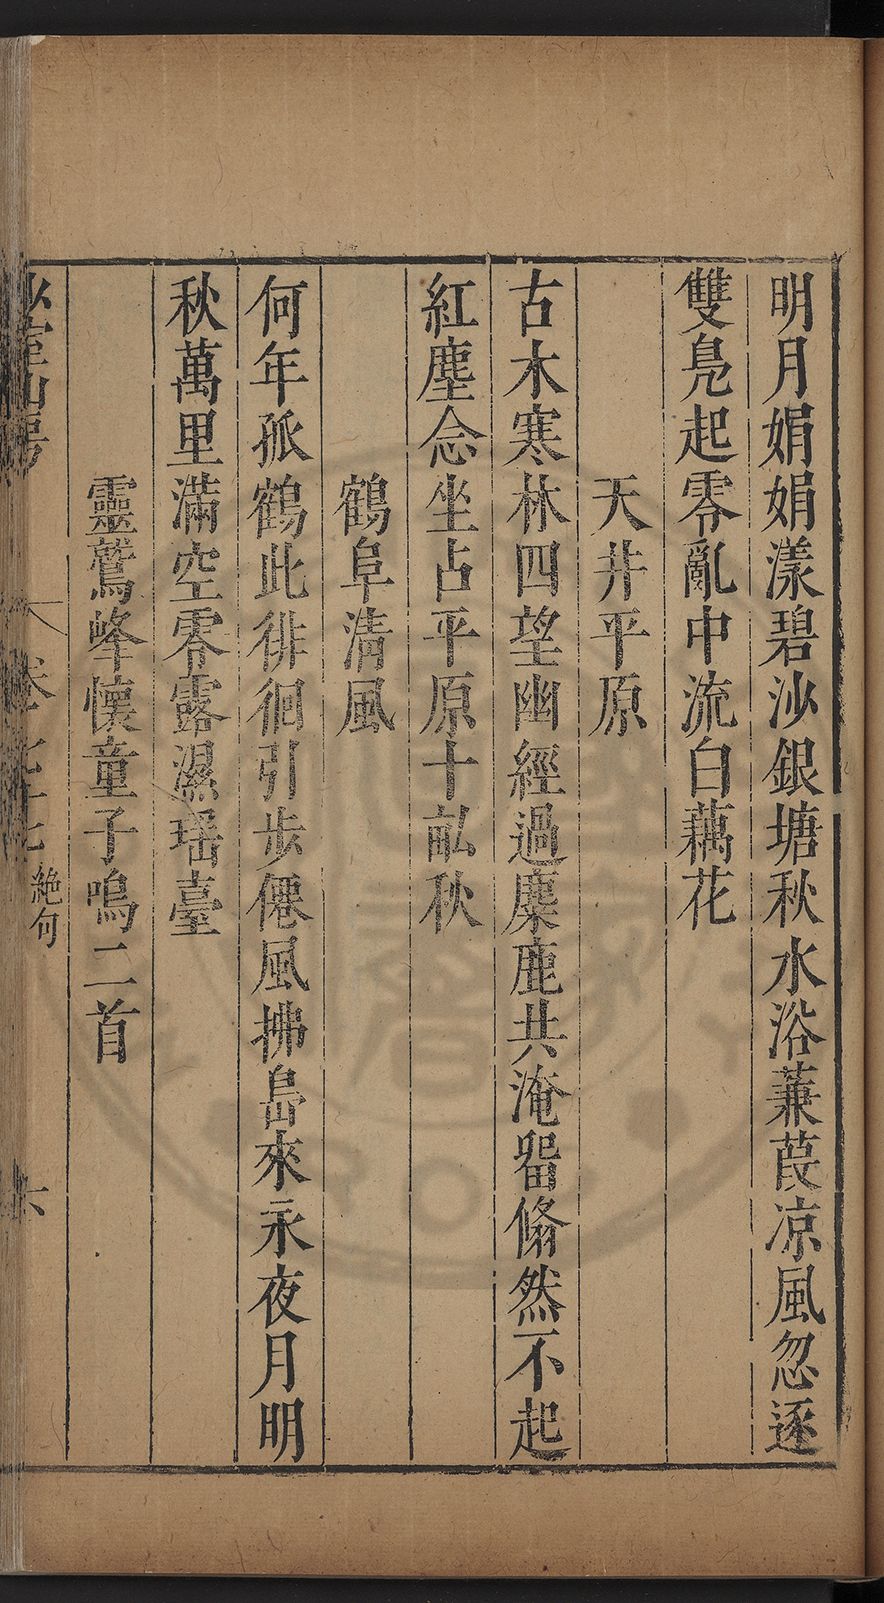 明月娟娟漾碧沙銀塘秋水浴蒹葭凉風忽逐
雙鳧起零亂中流白藕花
天井平原
古木寒林四望幽經過麋鹿共淹畱翛然不起
紅塵念坐占平原十畝秋
鶴阜清風
何年孤鶴此徘徊引步僊風拂島來永夜月明
秋萬里滿空零露濕瑶臺
靈鷲峰懷童子鳴二首
山房
卷
絶句
六